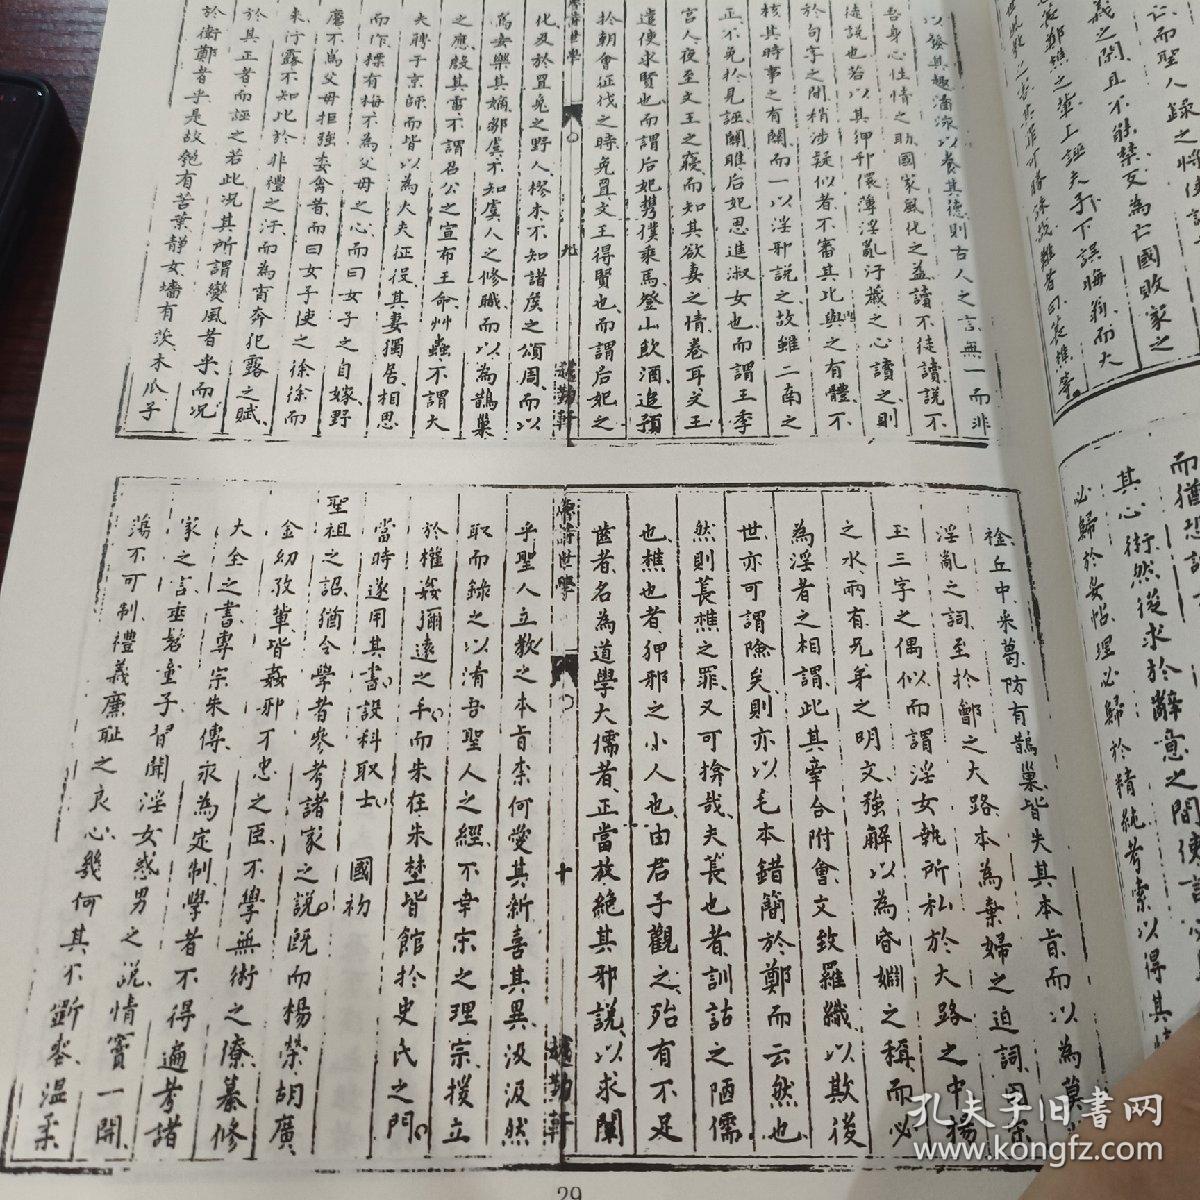 以發其趣潘泳以養其德則古人之言無一而非
吾身心性情之助國家風化之益讀不徒讀說不
徒說也若以其狎邪儇薄淫亂汙衊之心讀之則
於句字之間稍涉疑似者不審其比與之有體不
核其時事之有關而一以淫邪說之故雖二南之
正不免於見誣關雎后妃思進淑女也而謂王季
宮人夜至文王之寢而知其欲妻之情卷耳文王
遣使求賢也而謂后妃携僕乘馬登山飲酒追預
於朝會征伐之時兔罝文王得賢也而謂后妃之
九
越勤軒
化及於罝兔之野人樛木不知諸侯之頌周而以
為安樂其嫡鄒虞不知虞人之修職而以為鵲巢
之應殷其雷不謂召公之宣布王命艸蟲不謂大
夫聘于京師而皆以為大夫征役其妻獨居相思
而作摽有梅不為父母之心而曰女子之自嫁野
麕不為父母拒強委禽者而曰女子使之徐徐而
來行露不知比於非禮之汙而為宵奔犯露之賦
於其正者而誣之若此况其所謂變風者乎而况
於衛鄭者乎是故匏有苦葉靜女墻有茨木瓜子
衿丘中采葛防有鵲巢皆失其本旨而以為
淫亂之詞至於鄶之大路本為棄婦之迫詞因宋
玉三字之偶似而謂淫女執所私於大路之中揚
之水兩有兄弟之明文強解以為昏姻之稱而必
為淫者之相謂此其牽合附會文致羅織以欺後
世亦可謂險矣則亦以毛本錯簡於鄭而云然也
然則萇樵之罪又可揜哉夫萇也者訓詁之陋儒
也樵也者狎邪之小人也由君子觀之殆有不足
齒者名為道學大儒者正當放絕其邪說以求闡
詩世學
十
越勤軒
乎聖人立教之本旨柰何愛其新喜其異汲汲然
取而錄之以淆吾聖人之經不幸宋之理宗援立
於權姦彌遠之手而朱在朱埜皆館於史氏之門
當時遂用其書設科取士 國初
聖祖之詔猶令學者參考諸家之說旣而楊榮胡廣
金幼孜輩皆姦邪不忠之臣不學無術之傖纂修
大全之書專宗朱傳永為定制學者不得遍考諸
家之言垂髫童子習聞淫女惑男之說情竇一開
蕩不可制禮義廉恥之良心幾何其不斷喪溫柔
29
亡而聖人錄之將使
義之閑且不能禁反為亡國敗家之
而猶
其心術然後求於辭意之間使
必歸於安怗理必歸於精純考索以得其
孔夫子旧书网
www.kongfz.com